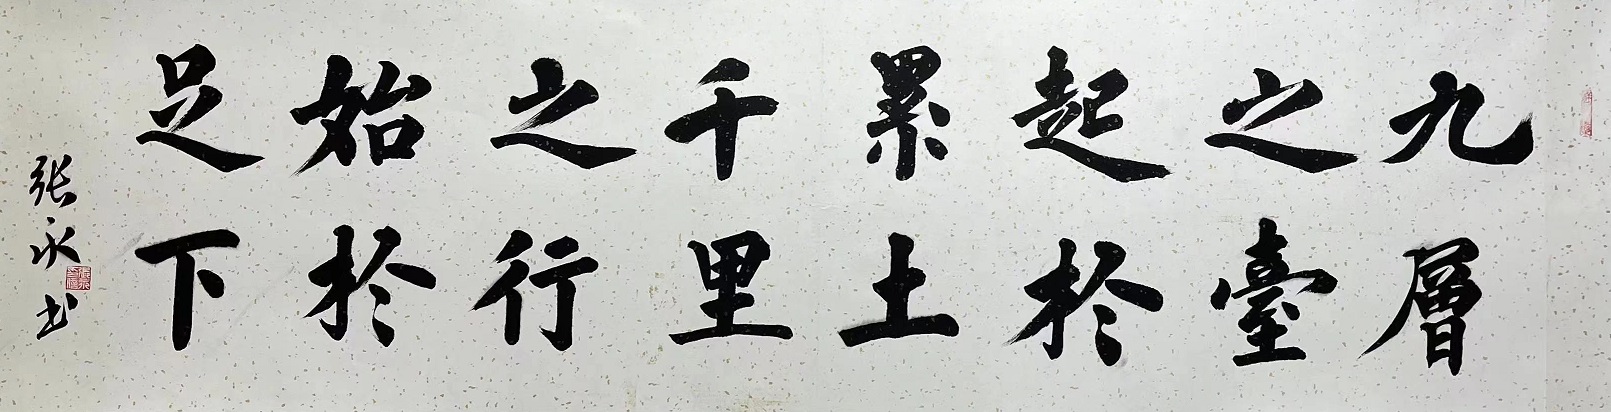 九層
之臺
起於
累土
千里
之行
始於
足下
张永书